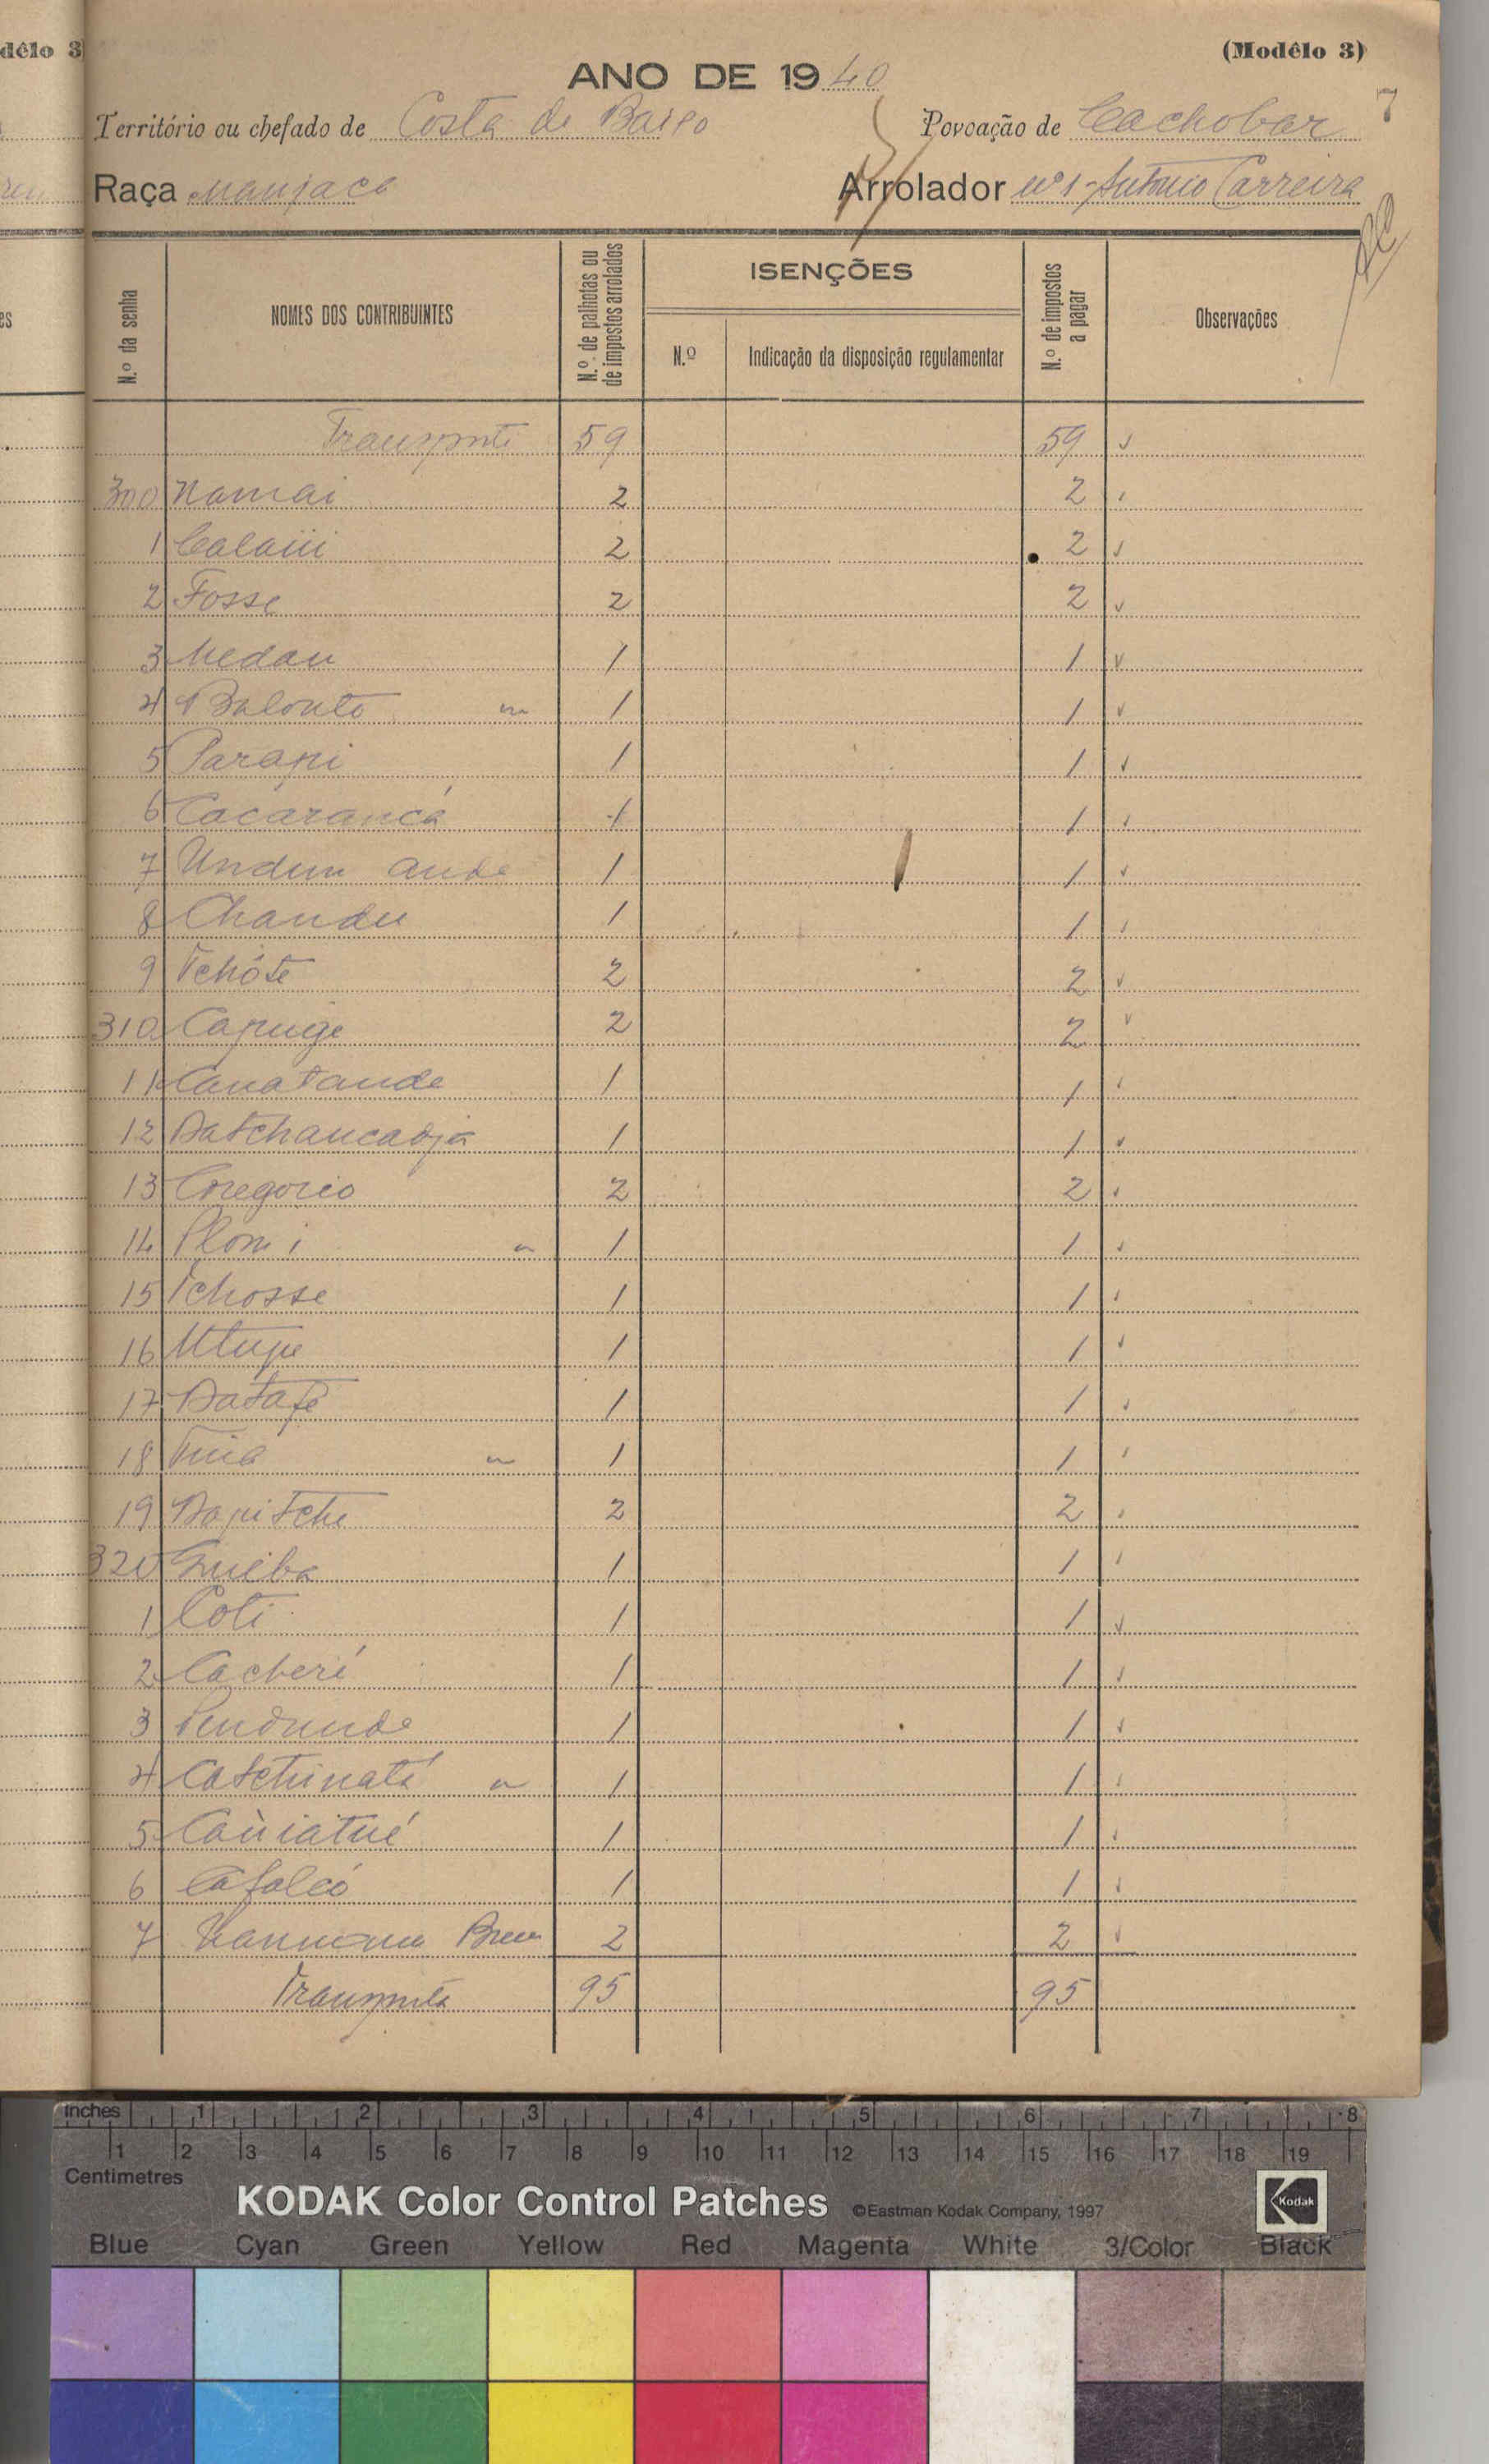 dêlo 3
(Modêlo 3)
ANO DE 1940
7
Território ou chefado de Costa de Baixo Povoação de Cachobar
Raça Manjaca Arrolador nº 1 - António Carreira
N.º da senha
NOMES DOS CONTRIBUINTES
N.º de palhotas ou de impostos arrolados
ISENÇÕES
N.º
Indicação da disposição regulamentar
N.º de impostos a pagar
Observações
es
Transporte 59 59
300 Namai 2 2
1 2 2
2 Fosse 2 2
3 Medau 1 1
4 Balonto 1 1
5 Parapi 1 1
6 Cacarancá 1 1
7 Undun ande 1 1
8 Chandu 1 1
9 Tchóte 2 2
310 Capuge 2 2
11 Canatande 1 1
12 Datchancadja 1 1
13 Gregorio 2 2
14 Plom i 1 1
15 Tchosse 1 1
16 Utupe 1 1
17 Datafe 1 1
18 1 1
19 Dapitche 2 2
320 Guiba 1 1
1 Coti 1 1
2 Cacheré 1 1
3 1 1
4 Catchinatá 1 1
5 Caùiatué 1 1
6 Cafaleó 1 1
7 2 2
Transporte 95 95
inches 1 2 3 4 5 6 7 8
1 2 3 4 5 6 7 8 9 10 11 12 13 14 15 16 17 18 19
Centimetres
KODAK Color Control Patches ©Eastman Kodak Company, 1997 Kodak
Blue Cyan Green Yellow Red Magenta White 3/Color Black